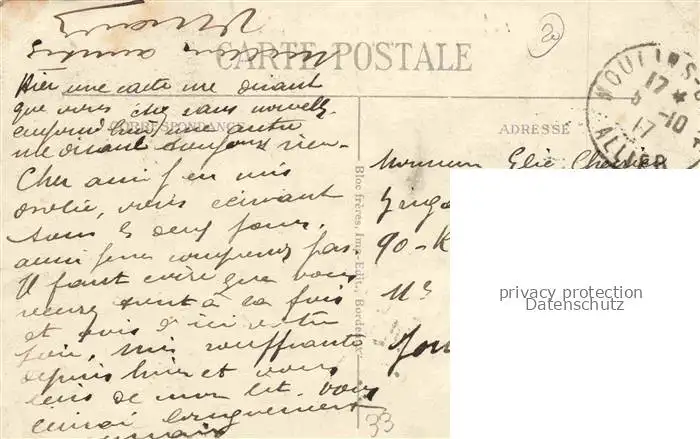 CARTE POSTALE
Hier une carte me disant
que vous êtes sans nouvelle
aujourd'hui une autre
CORRESPONDANCE
me disant toujours rien -
Cher ami j'en suis
désolée, vous écrivant
tous les deux jours,
aussi je ne comprends pas.
Il faut croire que vous
recevez tout à la fois
et puis d'ici votre
suis souffrante
depuis hier et vous
écris de mon lit. Vous
écrirai longuement
Bloc frères, Imp.-Edit., Bordeaux
33
2
MOULINS-S
17 *
5 -10
17
ALLIER
ADRESSE
Monsieur Elie
90 - R
privacy protection
Datenschutz